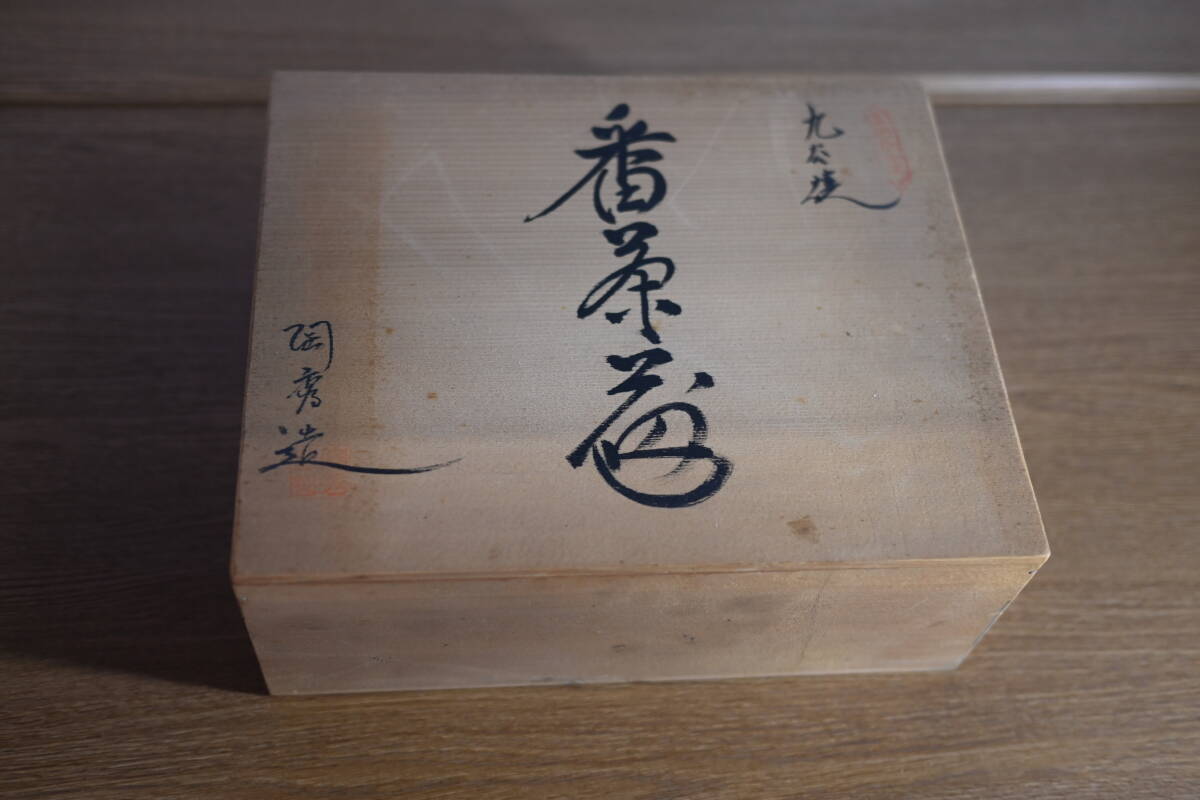 九谷焼
番茶器
陶秀造